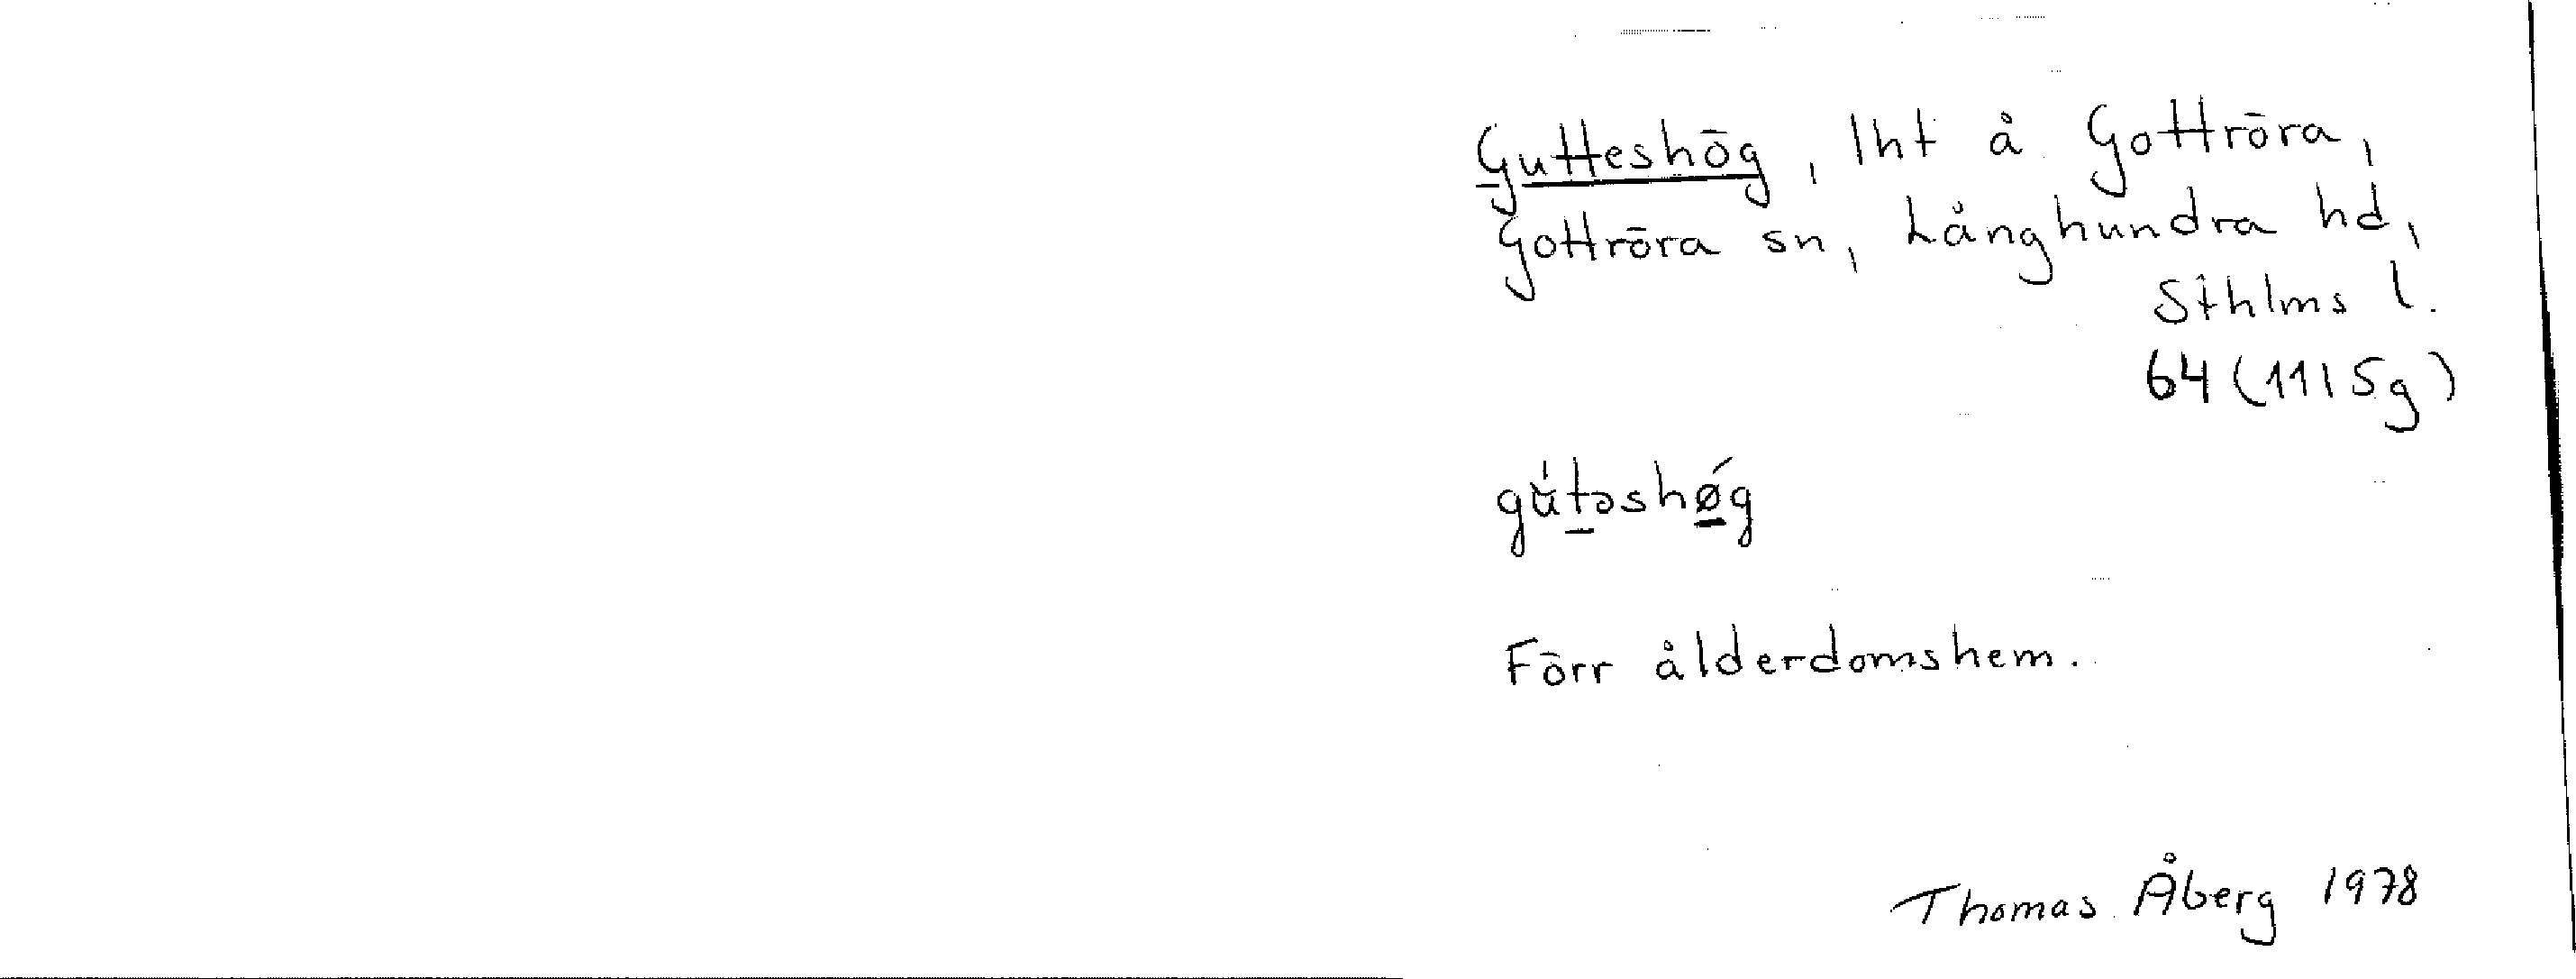 Gutteshög, lht å Gottröra,
Gottröra sn, Långhundra hd,
Sthlms l.
64 (11I5g)
gu̍t̠əshǿ̠g
Förr ålderdomshem.
Thomas Åberg 1978